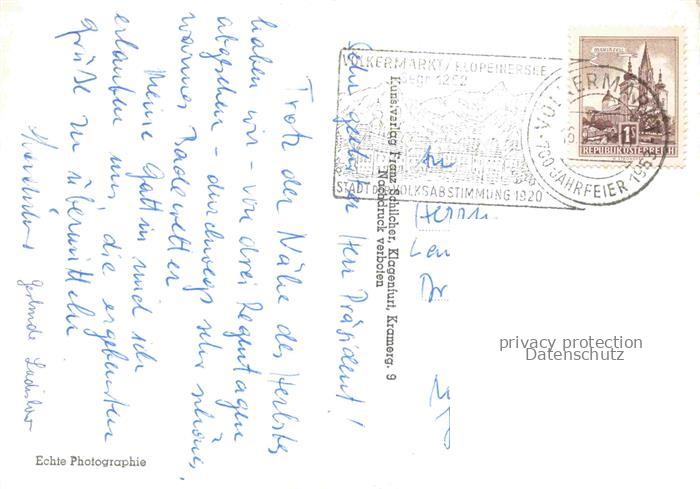 Sehr geehrter Herr Präsident!
Trotz der Nähe des Herbstes
haben wir - von drei Regentagen
abgesehen - durchwegs sehr schönes,
warmes Badewetter
Meine Gattin und ich
erlauben uns, die ergebensten
Grüße zu übermitteln
Gertrude Ladislav
Echte Photographie
Kunstverlag Franz Schilcher, Klagenfurt, Kramerg. 9
Nachdruck verboten
VÖLKERMARKT / KLOPEINERSEE
SEGR 1252
STADT DER VOLKSABSTIMMUNG 1920
VÖLKERMARKT
700 JAHRFEIER 195
MARIAZELL
1S
REPUBLIK ÖSTERREICH
An
Herrn
Dr
privacy protection
Datenschutz